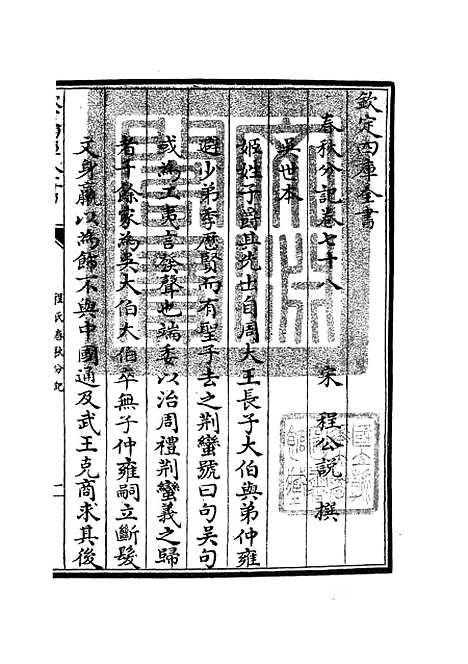 欽定四庫全書
春秋分記卷七十八
宋 程公說 撰
吳世本
姬姓子爵其先出自周大王長子大伯與弟仲雍
避少弟季歷賢而有聖子去之荆蠻號曰句吳句
或為工夷言發聲也端委以治周禮荆蠻義之歸
者千餘家為吳大伯大伯卒無子仲雍嗣立斷髮
文身臝以為飾不與中國通及武王克商求其後
程氏春秋分記
一